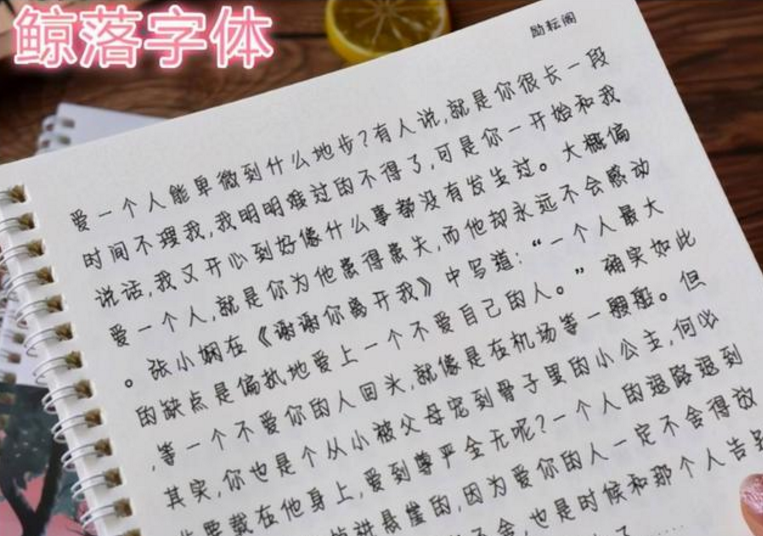 鲸落字体
励耘阁
爱一个人能卑微到什么地步?有人说,就是你很长一段
时间不理我,我明明难过的不得了,可是你一开始和我
说话,我又开心到好像什么事都没有发生过。大概偏
爱一个人,就是你为他患得患失,而他却永远不会感动
。张小娴在《谢谢你离开我》中写道:“一个人最大
的缺点是偏执地爱上一个不爱自己的人。”确实如此
,等一个不爱你的人回头,就像是在机场等一艘船。但
其实,你也是个从小被父母宠到骨子里的小公主,何必
要栽在他身上,爱到尊严全无呢?一个人的退路退到
悬崖的,因为爱你的人一定不舍得放
,也是时候和那个人告别